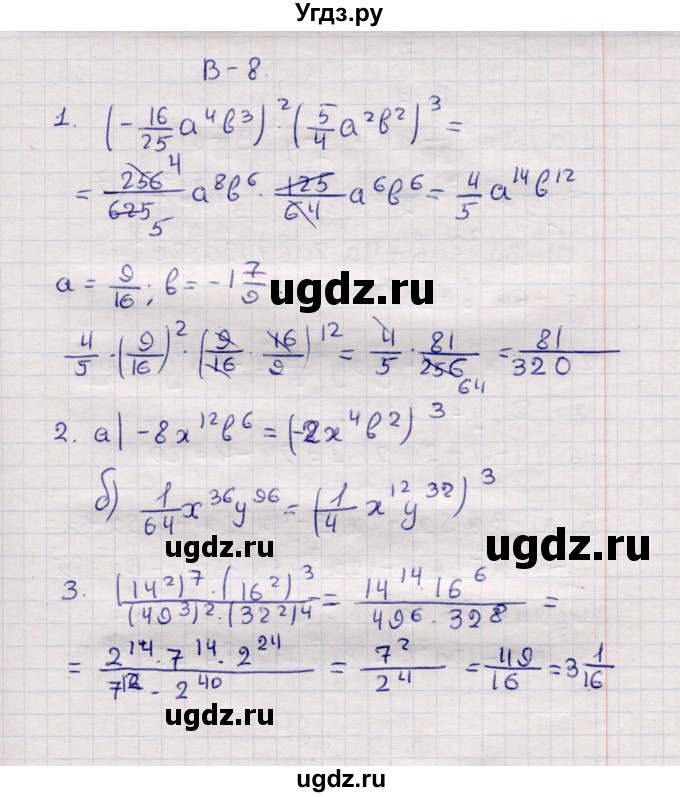 Угдз.ру
В-8.
1. (-16/25 a⁴b³)² · (5/4 a²b²)³ =
= 256 4/625 5 a⁸b⁶ · 125/64 a⁶b⁶ = 4/5 a¹⁴b¹²
a = 9/16; b = -1 7/9
ugdz.ru
4/5 · (9/16)² · (9/16 · 16/9)¹² = 4/5 · 81/256 64 = 81/320
2. а) -8x¹²b⁶ = (-2x⁴b²)³
б) 1/64 x³⁶y⁹⁶ = (1/4 x¹²y³²)³
ugdz.ru
ugdz.ru
3. (14²)⁷ · (16²)³/(49³)² · (32²)4 = 14¹⁴ · 16⁶/49⁶ · 32⁸ =
= 2¹⁴ · 7¹⁴ · 2²⁴/7¹² - 2⁴⁰ = 7²/2⁴ = 49/16 = 3 1/16
ugdz.ru
ugdz.ru